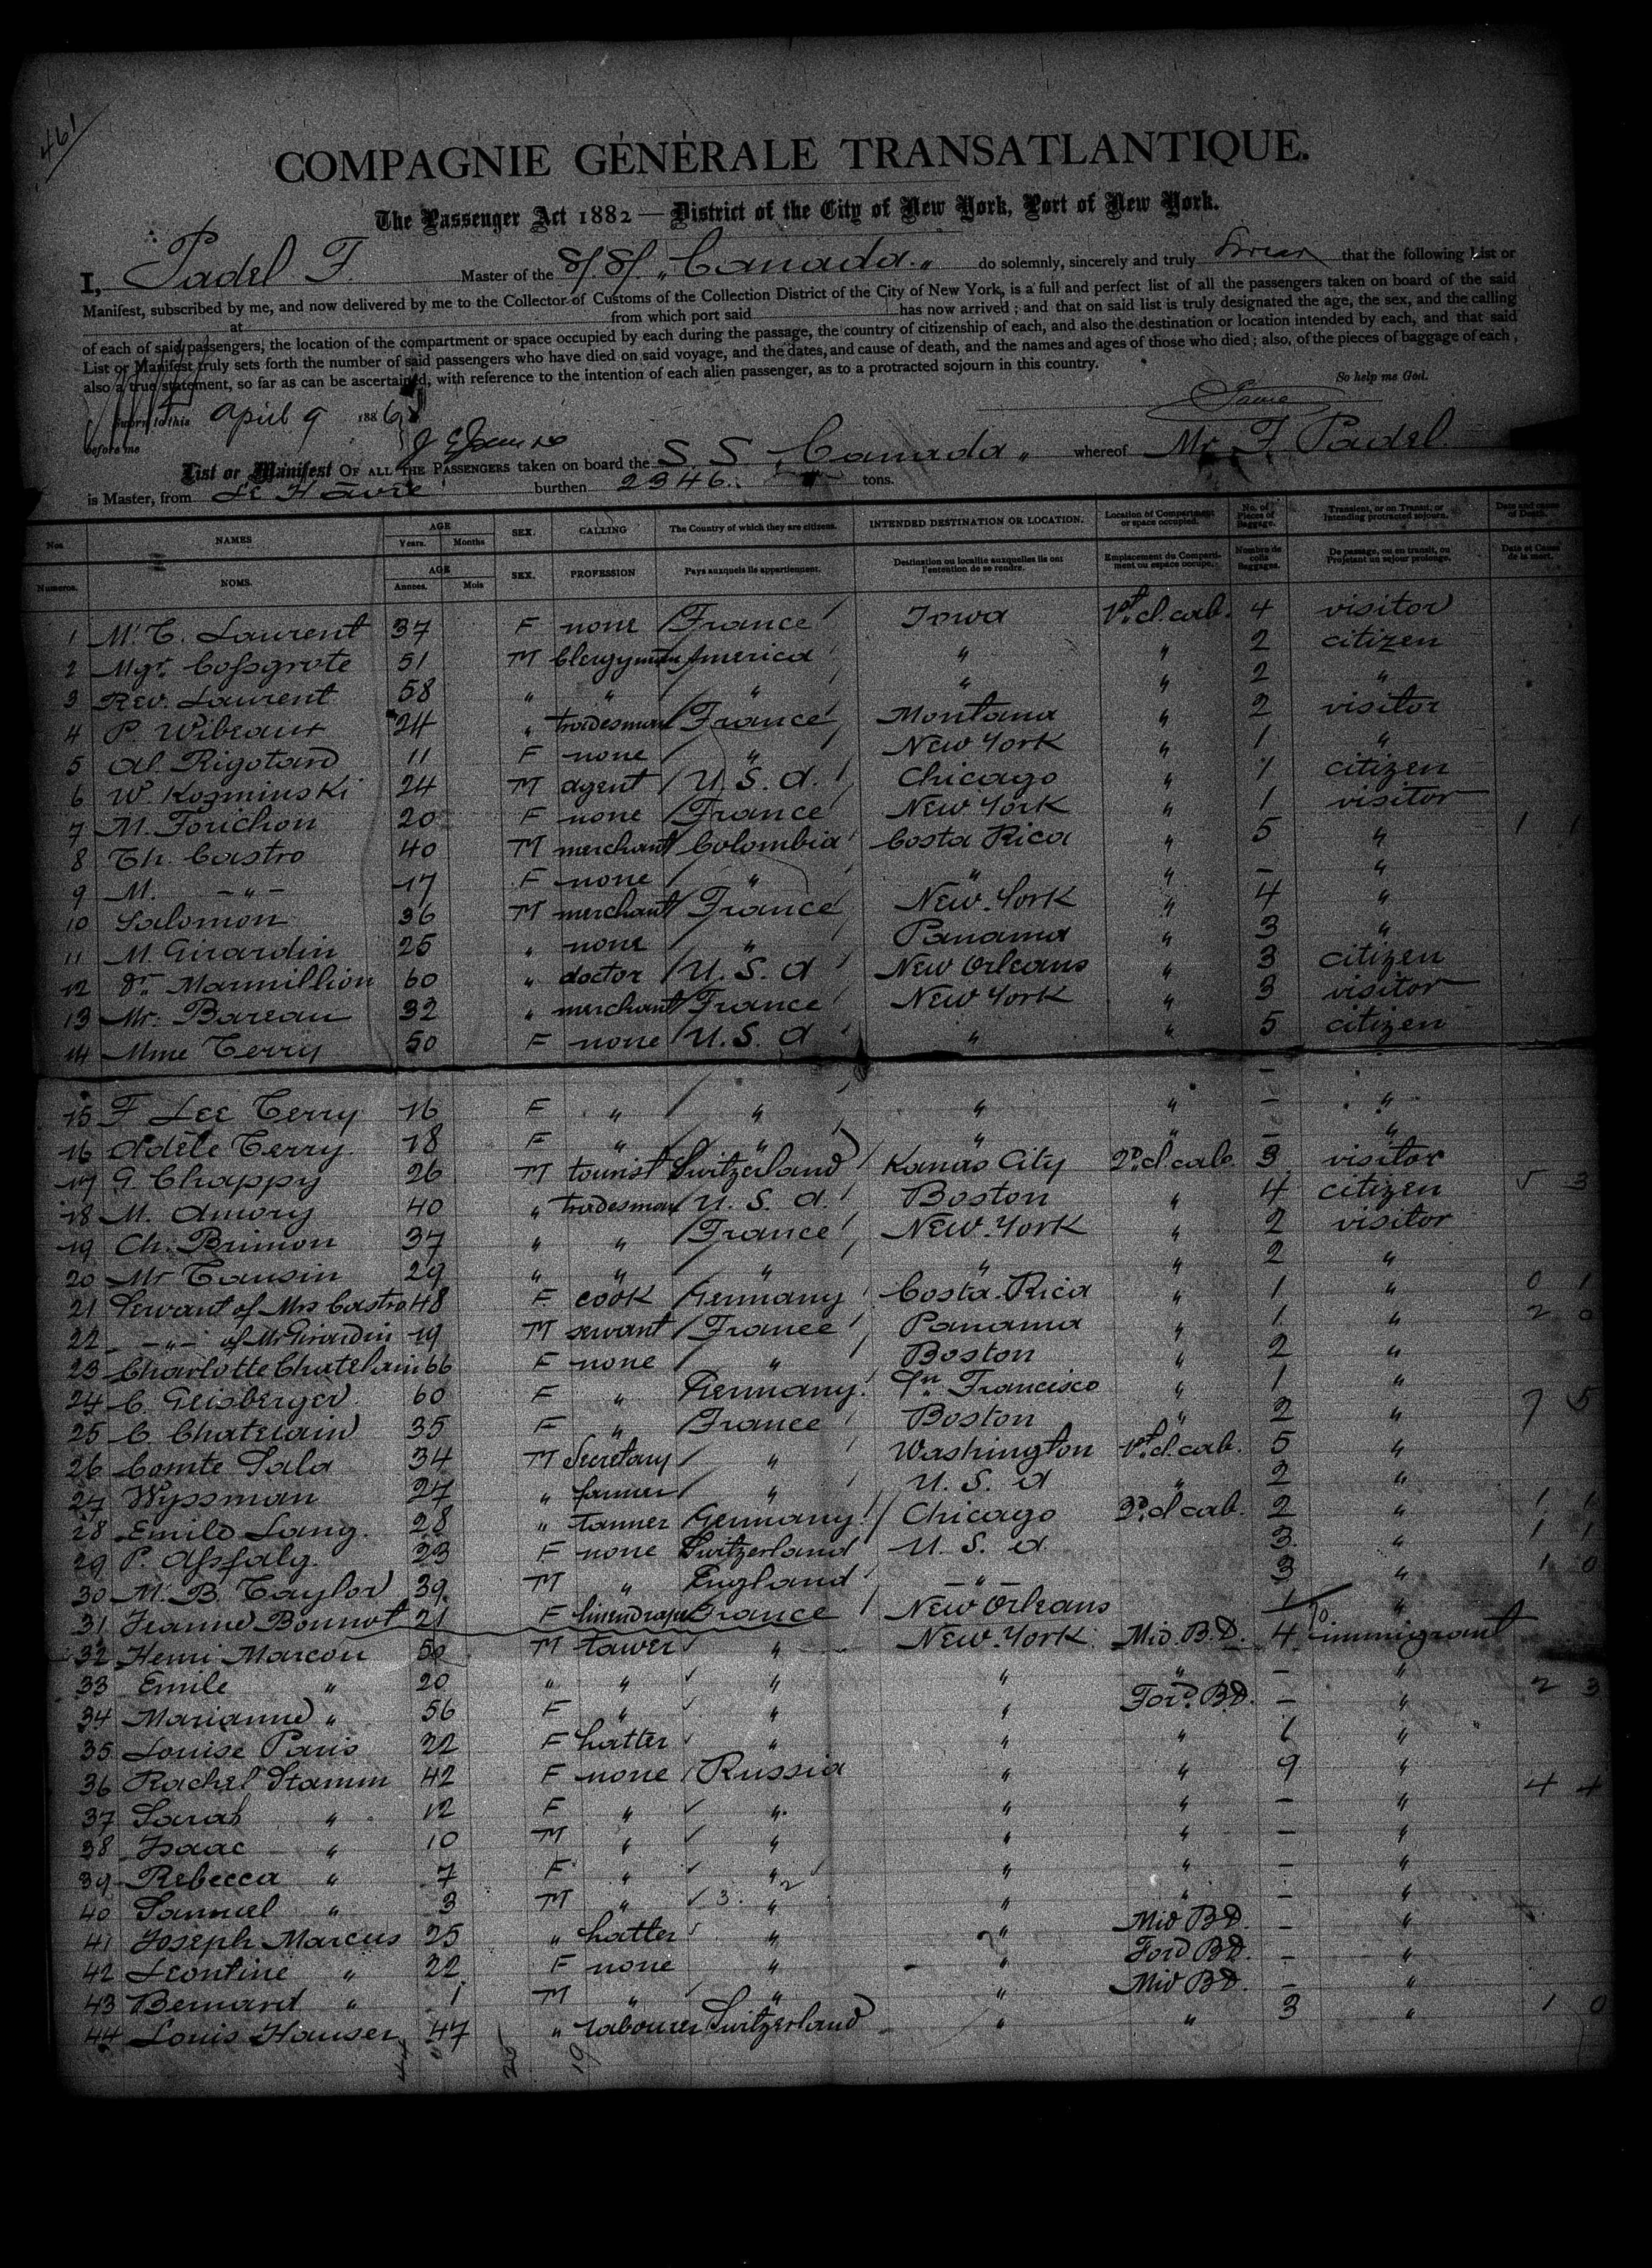 461
COMPAGNIE GÉNÉRALE TRANSATLANTIQUE.
The Passenger Act 1882 — District of the City of New York, Port of New York.
I, Padel F. Master of the S/S/ „Canada„ do solemnly, sincerely and truly Swear that the following List or
Manifest, subscribed by me, and now delivered by me to the Collector of Customs of the Collection District of the City of New York, is a full and perfect list of all the passengers taken on board of the said
at from which port said has now arrived; and that on said list is truly designated the age, the sex, and the calling
of each of said passengers, the location of the compartment or space occupied by each during the passage, the country of citizenship of each, and also the destination or location intended by each, and that said
List or Manifest truly sets forth the number of said passengers who have died on said voyage, and the dates, and cause of death, and the names and ages of those who died; also, of the pieces of baggage of each,
also a true statement, so far as can be ascertained, with reference to the intention of each alien passenger, as to a protracted sojourn in this country.
So help me God.
Sworn to this April 9 1886
before me
List or Manifest OF ALL THE PASSENGERS taken on board the S S Canada „ whereof Mr F. Padel
is Master, from Le Havre burthen 2346 tons.
Nos NAMES AGE Years. Months SEX. CALLING The Country of which they are citizens. INTENDED DESTINATION OR LOCATION. Location of Compartment or space occupied. No. of Pieces of Baggage. Transient, or on Transit, or Intending protracted sojourn. Date and cause of Death.
Numeros. NOMS. AGE Années. Mois SEX. PROFESSION Pays auxquels ils appartiennent. Destination ou localite auxquelles ils ont l'entention de se rendre. Emplacement du Compartiment ou espace occupe. Nombre de colis Baggages. De passage, ou en transit, ou Projetant un sejour prolonge. Date et Cause de la mort.
1 M. C. Laurent 37 F none France Iowa 1st cl. cab. 4 visitor
2 Mgr. Cossgrote 51 M Clergyman America „ „ 2 citizen
3 Rev. Laurent 58 „ „ „ „ „ 2 „
4 P. Wibeaux 24 „ tradesman France Montana „ 2 visitor
5 Al. Rigotard 11 F none „ New York „ 1 „
6 W. Kozminski 24 M agent U. S. A. Chicago „ 1 citizen
7 M. Forichon 20 F none France New York „ 1 visitor
8 Th. Castro 40 M merchant Colombia Costa Rica „ 5 „
9 M. —„— 17 F none „ „ „ — „
10 Salomon 36 M merchant France New York „ 4 „
11 M. Girardin 25 „ none „ Panama „ 3 „
12 Dr. Marmillion 60 „ doctor U. S. A New Orleans „ 3 citizen
13 Mr. Bareau 32 „ merchant France New York „ 3 visitor
14 Mme Terry 50 F none U. S. A „ „ 5 citizen
15 F Lee Terry 16 F „ „ „ „ — „
16 Adèle Terry 18 F „ „ „ „ — „
17 G. Chappy 26 M tourist Switzerland Kanas City 2d cl. cab. 3 visitor
18 M. Amory 40 „ tradesman U. S. A. Boston „ 4 citizen
19 Ch. Brimon 37 „ „ France New York „ 2 visitor
20 Mr Tansin 29 „ „ „ „ „ 2 „
21 Servant of Mrs Castro 48 F cook Germany Costa-Rica „ 1 „
22 —„— of Mr Girardin 19 M servant France Panama „ 1 „
23 Charlotte Chatelain 66 F none „ Boston „ 2 „
24 C. Geisberger 60 F „ Germany Sn Francisco „ 1 „
25 C Chatelain 35 F „ France Boston „ 2 „
26 Comte Sala 34 M Secretary „ Washington 1st cl. cab. 5 „
27 Wyssman 27 „ farmer „ U. S. A „ 2 „
28 Emile Lang. 28 „ tanner Germany Chicago 3d cl cab. 2 „
29 P. Assfalg. 23 F none Switzerland U. S. A 3 „
30 M. B. Taylor 39 M „ England —„— 3 „
31 Jeanne Bonnot 21 F linendraper France New Orleans 1 „
32 Henri Marcon 50 M tawer „ New-York Mid. B.D. 4 immigrant
33 Emile „ 20 „ „ „ „ „ — „
34 Marianne „ 56 F „ „ „ Ford. BD. — „
35 Louise Paris 22 F hatter „ „ „ 1 „
36 Rachel Stamm 42 F none Russia „ „ 9 „
37 Sarah „ 12 F „ „ „ „ — „
38 Isaac „ 10 M „ „ „ „ — „
39 Rebecca „ 7 F „ „ „ „ — „
40 Samuel „ 3 M „ „ „ „ — „
41 Joseph Marcus 25 „ hatter „ „ Mid BD. — „
42 Leontine „ 22 F none „ „ Ford BD. — „
43 Bernard „ 1 M „ „ „ Mid BD. — „
44 Louis Hauser 47 „ labourer Switzerland „ „ 3 „